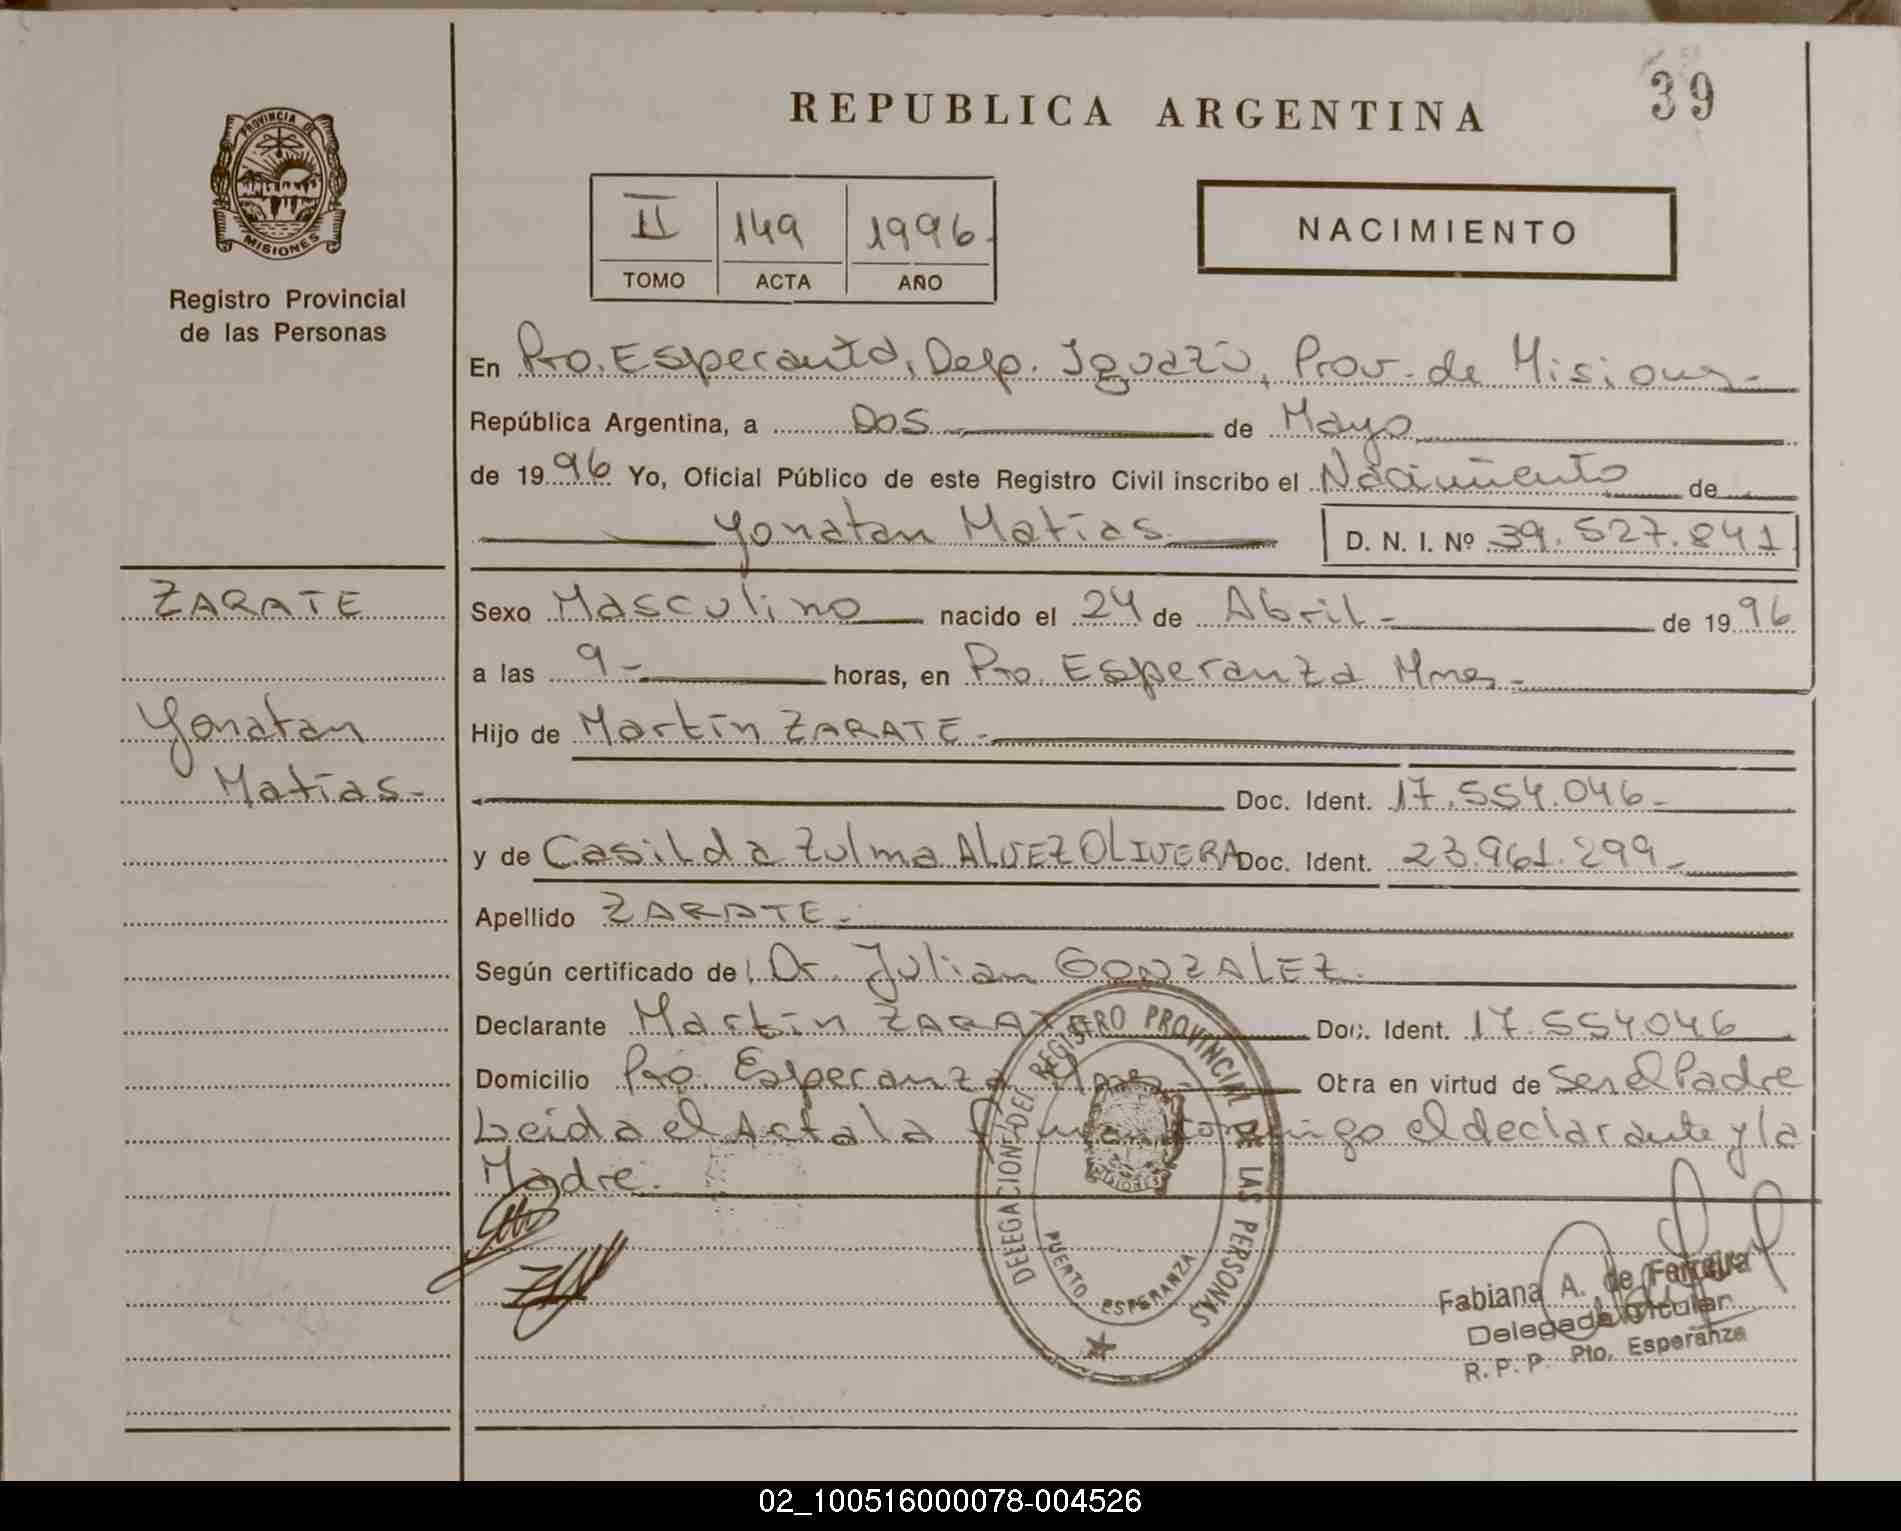 39
REPUBLICA ARGENTINA
PROVINCIA DE
MISIONES
Registro Provincial
de las Personas
II 149 1996.
TOMO ACTA AÑO
NACIMIENTO
En Pto. Esperanza, Dep. Iguazú, Prov. de Misiones-
República Argentina, a Dos de Mayo
de 1996 Yo, Oficial Público de este Registro Civil inscribo el Nacimiento de
Yonatan Matías D. N. I. Nº 39.527.841
ZARATE
Sexo Masculino nacido el 24 de Abril- de 1996
a las 9- horas, en Pto. Esperanza Mnes-
Yonatan
Hijo de Martín ZARATE-
Matías-
Doc. Ident. 17.554.046-
y de Casilda Zulma ALVEZ OLIVERA Doc. Ident. 23.961.299-
Apellido ZARATE-
Según certificado de: Dr. Julian GONZALEZ.
Declarante Martín ZARATE Doc. Ident. 17.554046
Domicilio Pto. Esperanza Mnes- Obra en virtud de Ser el Padre
Leida el Acta la firman conmigo el declarante y la
Madre.
DELEGACION DEL REGISTRO PROVINCIAL DE LAS PERSONAS
MISIONES
PUERTO ESPERANZA
Fabiana A. de Ferreira
Delegada Titular
R. P. P. Pto. Esperanza
02_100516000078-004526